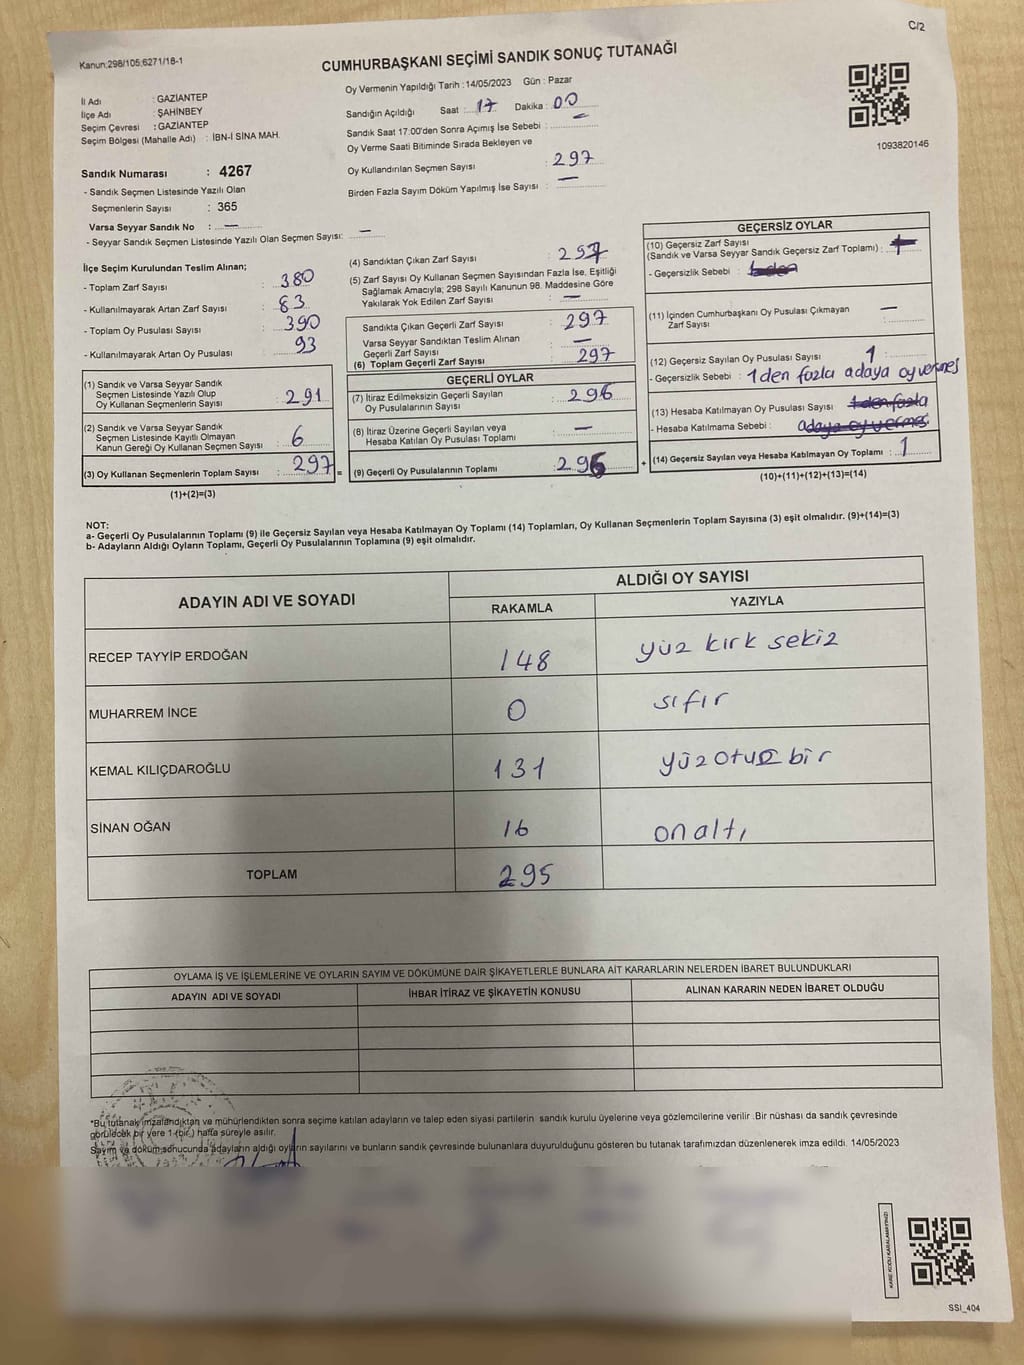 C/2
Kanun:298/105;6271/18-1
CUMHURBAŞKANI SEÇİMİ SANDIK SONUÇ TUTANAĞI
Oy Vermenin Yapıldığı Tarih : 14/05/2023 Gün : Pazar
İl Adı : GAZİANTEP
İlçe Adı : ŞAHİNBEY
Seçim Çevresi : GAZİANTEP
Seçim Bölgesi (Mahalle Adı) : İBN-İ SİNA MAH.
Sandığın Açıldığı Saat : 17 Dakika : 00
Sandık Saat 17:00'den Sonra Açımış İse Sebebi : —
Oy Verme Saati Bitiminde Sırada Bekleyen ve
Oy Kullandırılan Seçmen Sayısı : 297
Birden Fazla Sayım Döküm Yapılmış İse Sayısı : —
1093820146
Sandık Numarası : 4267
- Sandık Seçmen Listesinde Yazılı Olan
Seçmenlerin Sayısı : 365
Varsa Seyyar Sandık No : —
- Seyyar Sandık Seçmen Listesinde Yazılı Olan Seçmen Sayısı: —
İlçe Seçim Kurulundan Teslim Alınan;
- Toplam Zarf Sayısı : 380
- Kullanılmayarak Artan Zarf Sayısı : 83
- Toplam Oy Pusulası Sayısı : 390
- Kullanılmayarak Artan Oy Pusulası : 93
(1) Sandık ve Varsa Seyyar Sandık
Seçmen Listesinde Yazılı Olup
Oy Kullanan Seçmenlerin Sayısı : 291
(2) Sandık ve Varsa Seyyar Sandık
Seçmen Listesinde Kayıtlı Olmayan
Kanun Gereği Oy Kullanan Seçmen Sayısı : 6
(3) Oy Kullanan Seçmenlerin Toplam Sayısı : 297 =
(1)+(2)=(3)
(4) Sandıktan Çıkan Zarf Sayısı : 297
(5) Zarf Sayısı Oy Kullanan Seçmen Sayısından Fazla İse, Eşitliği
Sağlamak Amacıyla; 298 Sayılı Kanunun 98. Maddesine Göre
Yakılarak Yok Edilen Zarf Sayısı : —
Sandıkta Çıkan Geçerli Zarf Sayısı : 297
Varsa Seyyar Sandıktan Teslim Alınan
Geçerli Zarf Sayısı : —
(6) Toplam Geçerli Zarf Sayısı : 297
GEÇERLİ OYLAR
(7) İtiraz Edilmeksizin Geçerli Sayılan
Oy Pusulalarının Sayısı : 296
(8) İtiraz Üzerine Geçerli Sayılan veya
Hesaba Katılan Oy Pusulası Toplamı : —
(9) Geçerli Oy Pusulalarının Toplamı : 296 +
GEÇERSİZ OYLAR
(10) Geçersiz Zarf Sayısı
(Sandık ve Varsa Seyyar Sandık Geçersiz Zarf Toplamı) : 1
- Geçersizlik Sebebi : 1den
(11) İçinden Cumhurbaşkanı Oy Pusulası Çıkmayan
Zarf Sayısı : —
(12) Geçersiz Sayılan Oy Pusulası Sayısı : 1
- Geçersizlik Sebebi : 1den fazla adaya oy vermes
(13) Hesaba Katılmayan Oy Pusulası Sayısı : 1den fazla
- Hesaba Katılmama Sebebi : adaya oy vermes
(14) Geçersiz Sayılan veya Hesaba Katılmayan Oy Toplamı : 1
(10)+(11)+(12)+(13)=(14)
NOT:
a- Geçerli Oy Pusulalarının Toplamı (9) ile Geçersiz Sayılan veya Hesaba Katılmayan Oy Toplamı (14) Toplamları, Oy Kullanan Seçmenlerin Toplam Sayısına (3) eşit olmalıdır. (9)+(14)=(3)
b- Adayların Aldığı Oyların Toplamı, Geçerli Oy Pusulalarının Toplamına (9) eşit olmalıdır.
ADAYIN ADI VE SOYADI
ALDIĞI OY SAYISI
RAKAMLA YAZIYLA
RECEP TAYYİP ERDOĞAN 148 yüz kırk sekiz
MUHARREM İNCE 0 sıfır
KEMAL KILIÇDAROĞLU 131 yüz otuz bir
SİNAN OĞAN 16 on altı
TOPLAM 295
OYLAMA İŞ VE İŞLEMLERİNE VE OYLARIN SAYIM VE DÖKÜMÜNE DAİR ŞİKAYETLERLE BUNLARA AİT KARARLARIN NELERDEN İBARET BULUNDUKLARI
ADAYIN ADI VE SOYADI İHBAR İTİRAZ VE ŞİKAYETİN KONUSU ALINAN KARARIN NEDEN İBARET OLDUĞU
*Bu tutanak imzalandıktan ve mühürlendikten sonra seçime katılan adayların ve talep eden siyasi partilerin sandık kurulu üyelerine veya gözlemcilerine verilir .Bir nüshası da sandık çevresinde
görülecek bir yere 1 (bir) hafta süreyle asılır.
Sayım ve döküm sonucunda adayların aldığı oyların sayılarını ve bunların sandık çevresinde bulunanlara duyurulduğunu gösteren bu tutanak tarafımızdan düzenlenerek imza edildi. 14/05/2023
KARE KODU KARALAMAYINIZ!
SSI_404